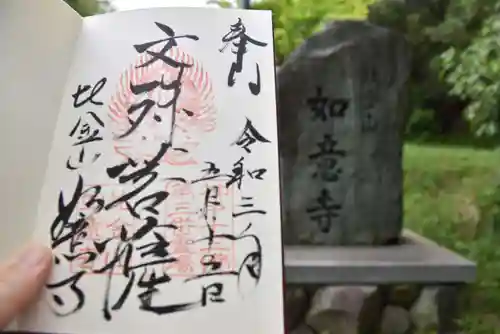 奉拝
令和三年
五月十五日
文殊菩薩
比金山
如意寺
如意寺